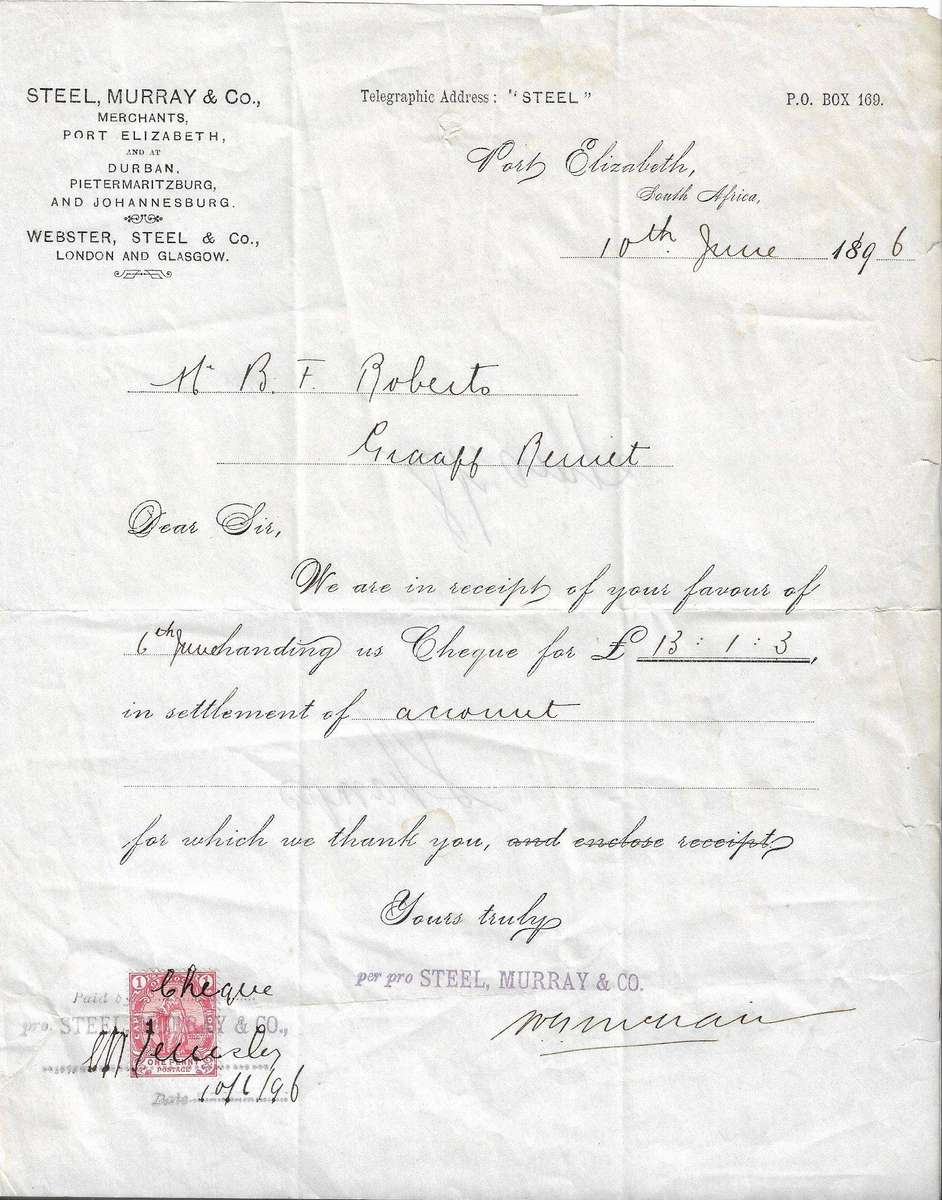 STEEL, MURRAY & Co.,
MERCHANTS,
PORT ELIZABETH,
AND AT
DURBAN,
PIETERMARITZBURG,
AND JOHANNESBURG.
WEBSTER, STEEL & Co.,
LONDON AND GLASGOW.
Telegraphic Address: "STEEL"
P.O. BOX 169.
Port Elizabeth,
South Africa,
10th June 1896
Mr B. F. Roberts
Graaff Reinet
Dear Sir,
We are in receipt of your favour of
6th June handing us Cheque for £ 13 : 1 : 3,
in settlement of account
for which we thank you, and enclose receipt
Yours truly
per pro STEEL, MURRAY & CO.
Paid by Cheque
pro. STEEL, MURRAY & CO.,
1 1
1
ONE PENNY
POSTAGE
Date 10/6/96